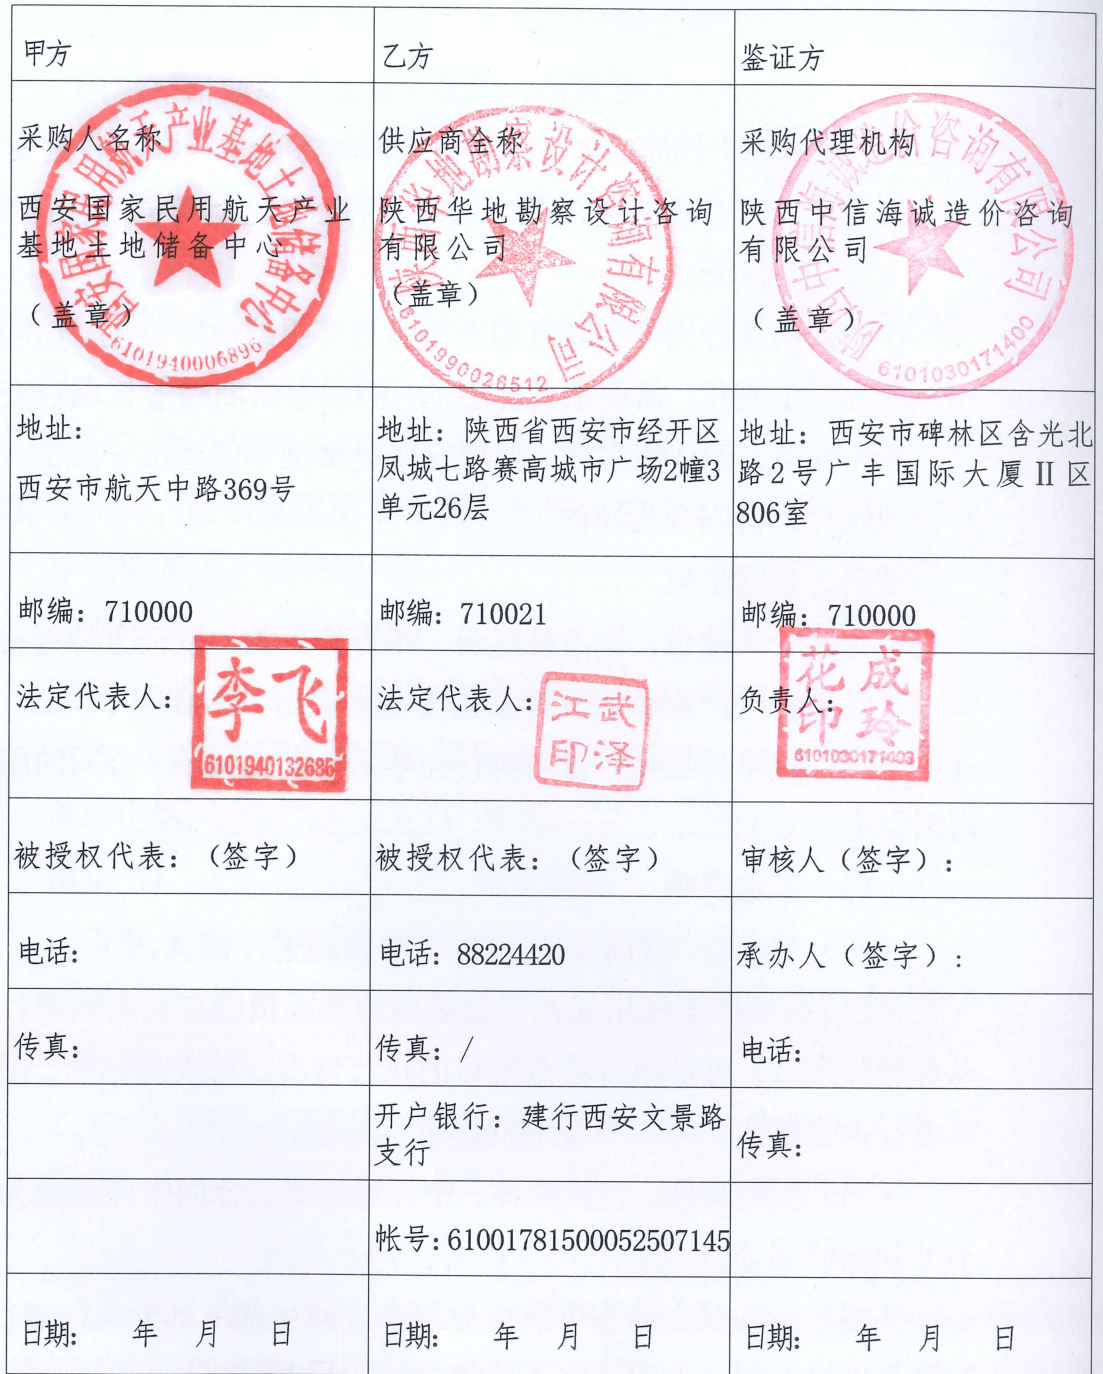 甲方
乙方
鉴证方
采购人名称
西安国家民用航天产业
基地土地储备中心
（盖章）
西安国家民用航天产业基地土地储备中心
6101940006896
供应商全称
陕西华地勘察设计咨询
有限公司
（盖章）
陕西华地勘察设计咨询有限公司
6101990026512
采购代理机构
陕西中信海诚造价咨询
有限公司
（盖章）
陕西中信海诚造价咨询有限公司
6101030171400
地址：
西安市航天中路369号
地址：陕西省西安市经开区
凤城七路赛高城市广场2幢3
单元26层
地址：西安市碑林区含光北
路2号广丰国际大厦Ⅱ区
806室
邮编：710000
邮编：710021
邮编：710000
法定代表人：
李飞
6101940132686
法定代表人：
武泽
江印
负责人：
成玲
花印
6101030171403
被授权代表：（签字）
被授权代表：（签字）
审核人（签字）：
电话：
电话：88224420
承办人（签字）：
传真：
传真：/
电话：
开户银行：建行西安文景路
支行
传真：
帐号：61001781500052507145
日期： 年 月 日
日期： 年 月 日
日期： 年 月 日